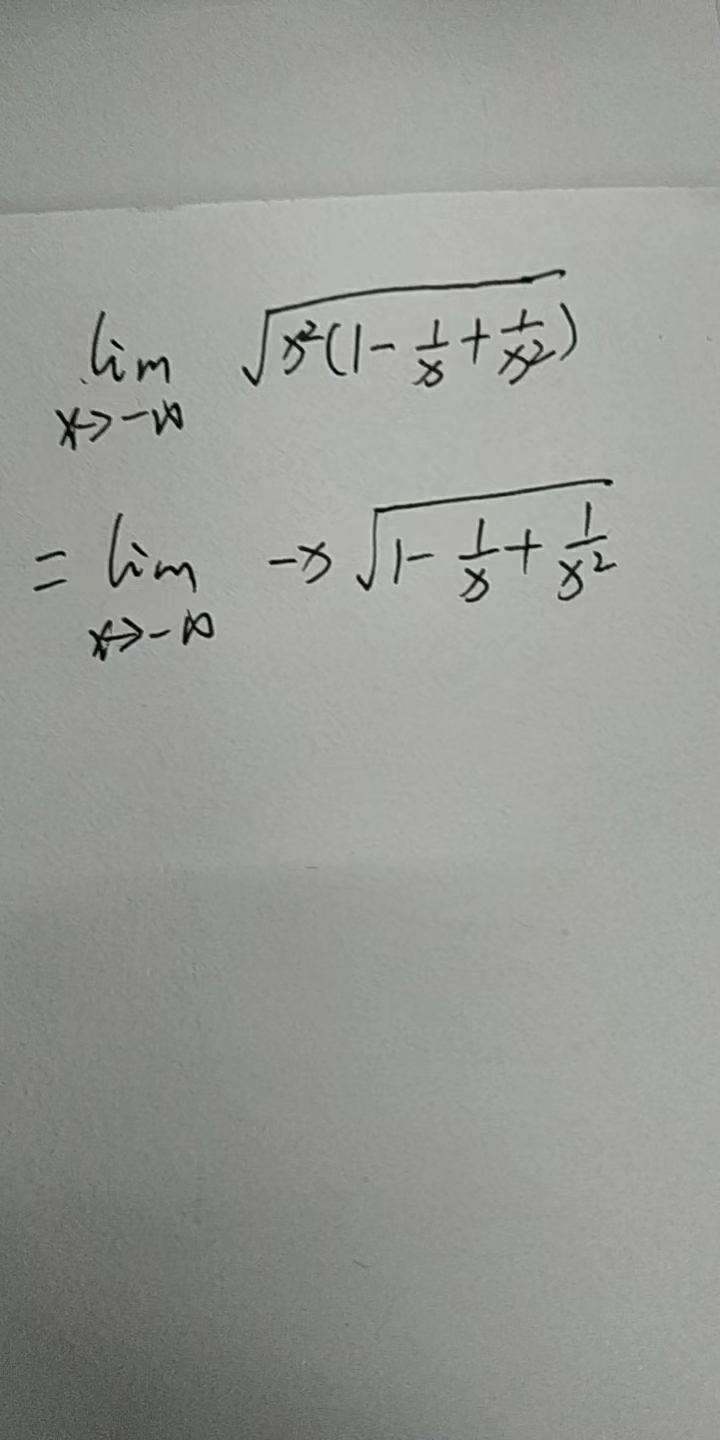 lim x→-∞ √(x²(1 - 1/x + 1/x²))
= lim x→-∞ -x √(1 - 1/x + 1/x²)